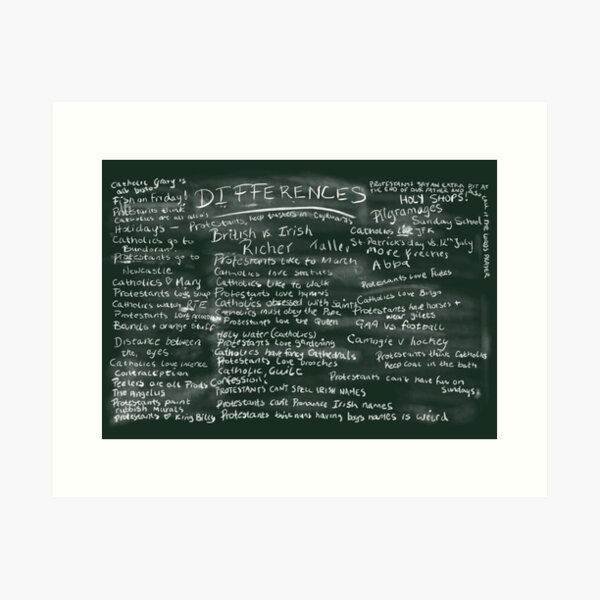 DIFFERENCES
Catholic Gravy is
all bisto
Fish on Friday!
Protestants think
Catholics are all alco's
Holidays —
Catholics go to
Bundoran
Protestants go to
Newcastle
Catholics ♡ Mary
Protestants love soup
Catholics watch RTE
Protestants love
Bands + orange stuff
Distance between
the eyes
Catholics love incence
Contraception
Peelers are all Prods
The Angelus
Protestants paint
rubbish Murals
Protestants ♡ King Billy
Protestants keep toasters in Cupboards
British vs Irish
Richer
Taller
Protestants like to March
Catholics love statues
Catholics like to walk
Protestants love hymns
Catholics obsessed with Saints
Catholics must obey the Pope
Protestants love the Queen
Holy water (Catholics)
Protestants love gardening
Catholics have fancy Cathedrals
Protestants love brooches
Catholic Guilt
Confession!
PROTESTANTS CAN'T SPELL IRISH NAMES
Protestants can't Pronounce Irish names
Protestants think nuns having boys names is weird
PROTESTANTS SAY AN EXTRA BIT AT
THE END OF OUR FATHER AND ALSO
CALL IT THE LORDS PRAYER
HOLY SHOPS!
Pilgramages
Sunday School
Catholics love JFK
St Patrick's day vs. 12th July
More Freckles
Abba
Protestants Love Flutes
Catholics Love Bingo
Protestants have horses +
wear gilets
GAA vs football
Camogie v hockey
Protestants think Catholics
Keep Coal in the bath
Protestants can't have fun on
Sundays